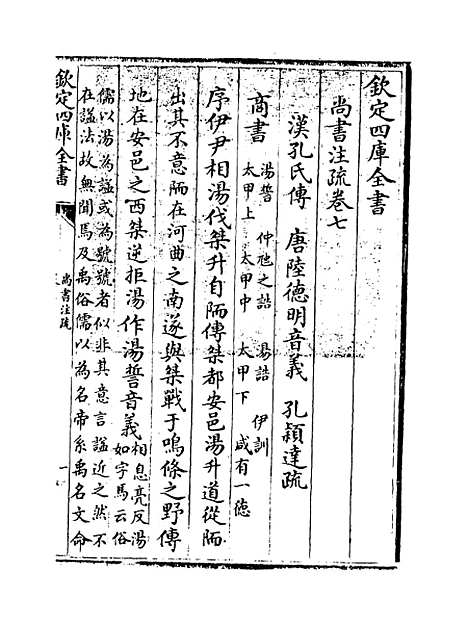 欽定四庫全書
尚書注疏卷七
漢孔氏傳 唐陸德明音義 孔穎達疏
商書
湯誓 仲虺之誥 湯誥 伊訓
太甲上 太甲中 太甲下 咸有一德
序伊尹相湯伐桀升自陑傳桀都安邑湯升道從陑
出其不意陑在河曲之南遂與桀戰于鳴條之野傳
地在安邑之西桀逆拒湯作湯誓音義
相息亮反湯
如字馬云俗
儒以湯為諡或為號號者似非其意言諡近之然不
在諡法故無聞焉及禹俗儒以為名帝系禹名文命
欽定四庫全書
尚書注疏
一